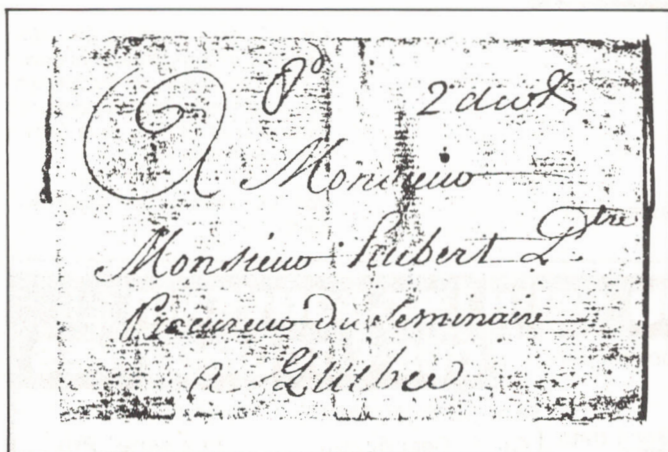 Pd 2 dwt
A Monsieur
Monsieur hubert Ptre
Procureur du Seminaire
a Quebec